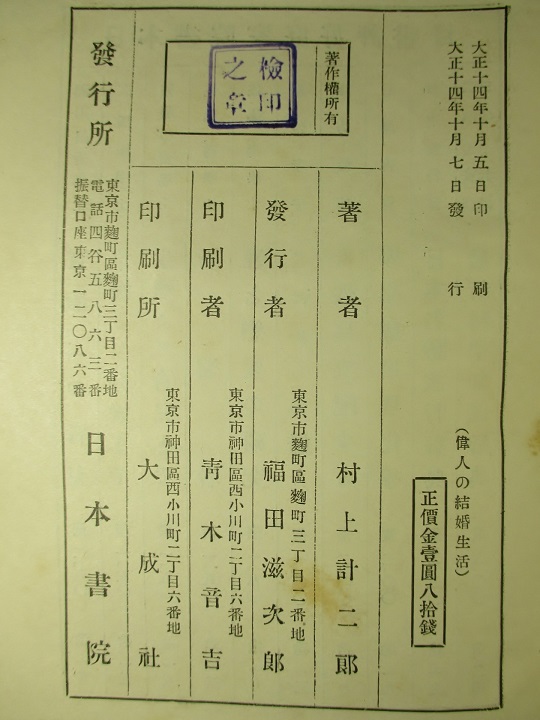 大正十四年十月五日印刷
大正十四年十月七日發行
(偉人の結婚生活)
正價金壹圓八拾錢
著作權所有
檢印之章
著者 村上計二郞
發行者 東京市麴町區麴町三丁目二番地 福田滋次郞
印刷者 東京市神田區西小川町二丁目六番地 靑木音吉
印刷所 東京市神田區西小川町二丁目六番地 大成社
發行所
東京市麴町區麴町三丁目二番地
電話四谷五八六三番
振替口座東京一二〇八六番
日本書院